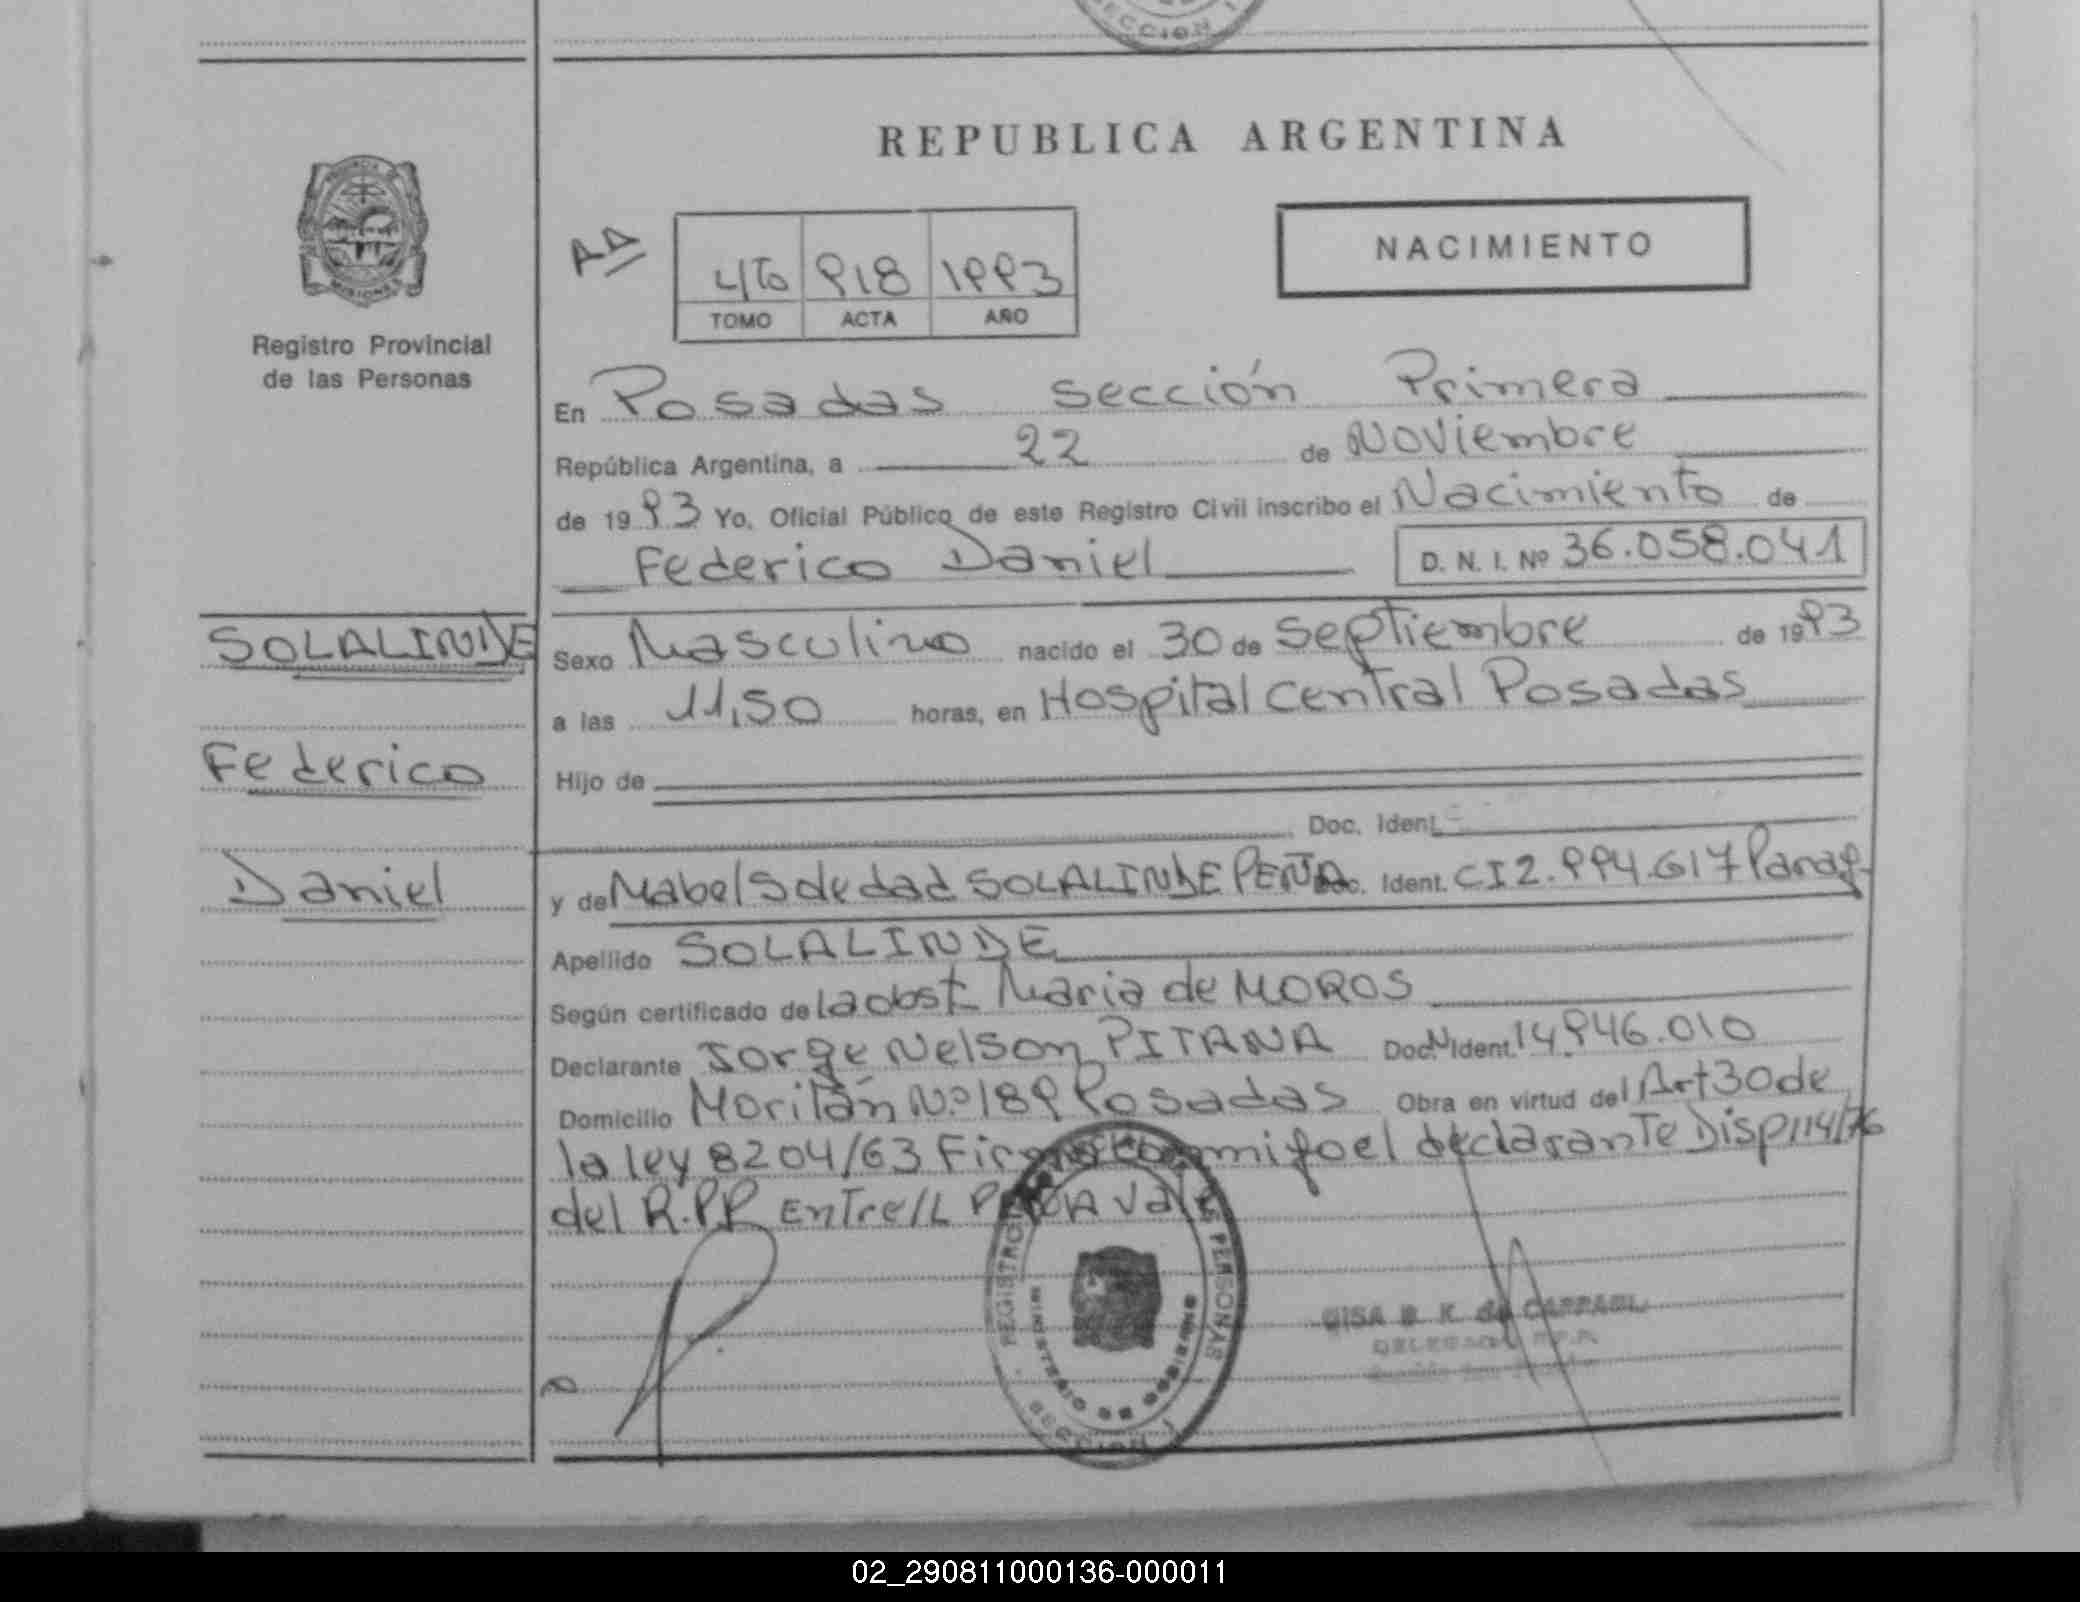 SECCION 1
REPUBLICA ARGENTINA
PROVINCIA DE
MISIONES
Registro Provincial
de las Personas
AD
4to 918 1993
TOMO ACTA AÑO
NACIMIENTO
En Posadas sección Primera
República Argentina, a 22 de Noviembre
de 1993 Yo, Oficial Público de este Registro Civil inscribo el Nacimiento de
Federico Daniel D. N. I. Nº 36.058.041
SOLALINDE
Federico
Daniel
Sexo Masculino nacido el 30 de septiembre de 1993
a las 11,50 horas, en Hospital central Posadas
Hijo de
Doc. Ident.
y de Mabel Soledad SOLALINDE PEÑA Doc. Ident. CI 2.994.617 Parag.
Apellido SOLALINDE
Según certificado de la obst. Maria de MOROS
Declarante Jorge Nelson PITANA Doc. Ident. 14.946.010
Domicilio Moritán Nº 189 Posadas Obra en virtud del Art 30 de
la ley 8204/63 Firma conmigo el declarante Disp 114/76
del R.P.P. Entre/L PEÑA Vale
REGISTRO PERSONAS
MINISTERIO DE GOBIERNO
SECCION 1
GISA B. K. de
DELEGADA R.P.P.
02_290811000136-000011